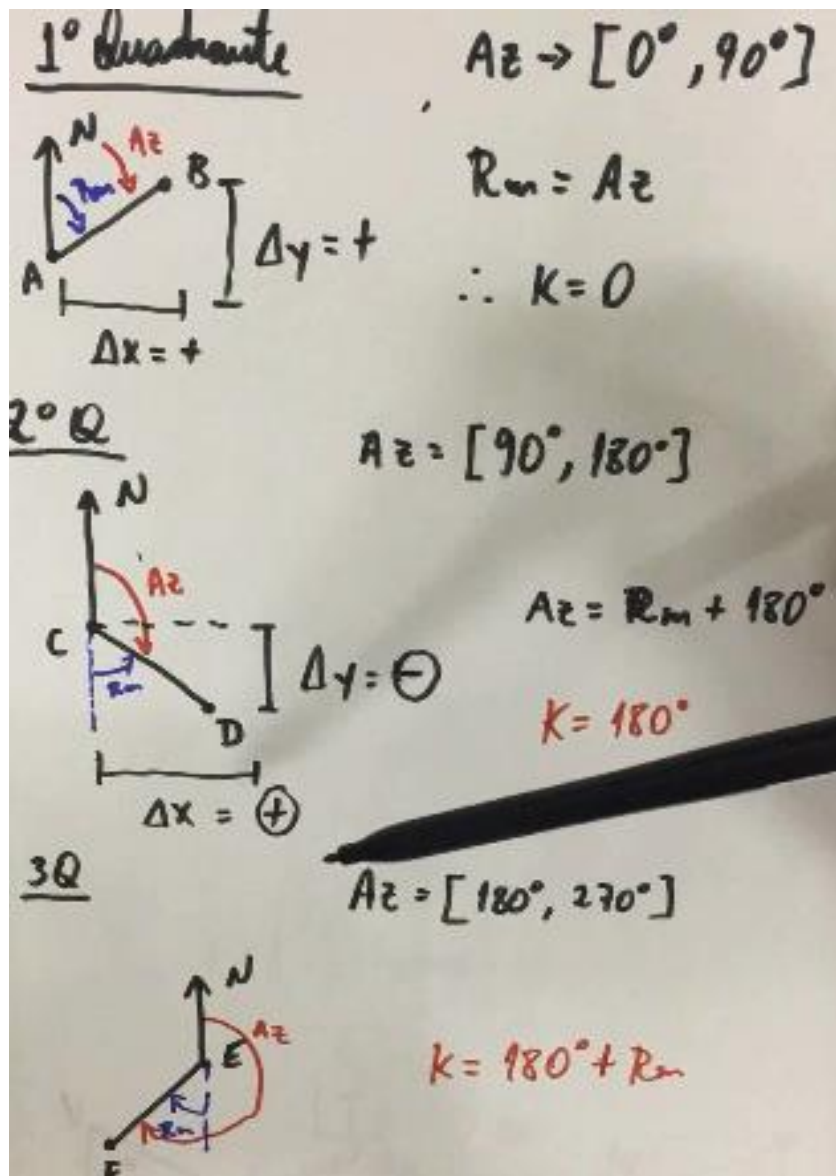 1º Quadrante
Az → [0°, 90°]
N
Az
Rm
B
A
Δy = +
Δx = +
Rm = Az
∴ K = 0
2º Q
Az = [90°, 180°]
N
Az
C
Rm
D
Δy = ⊖
Δx = ⊕
Az = Rm + 180°
K = 180°
3Q
Az = [180°, 270°]
N
Az
E
Rm
F
K = 180° + Rm